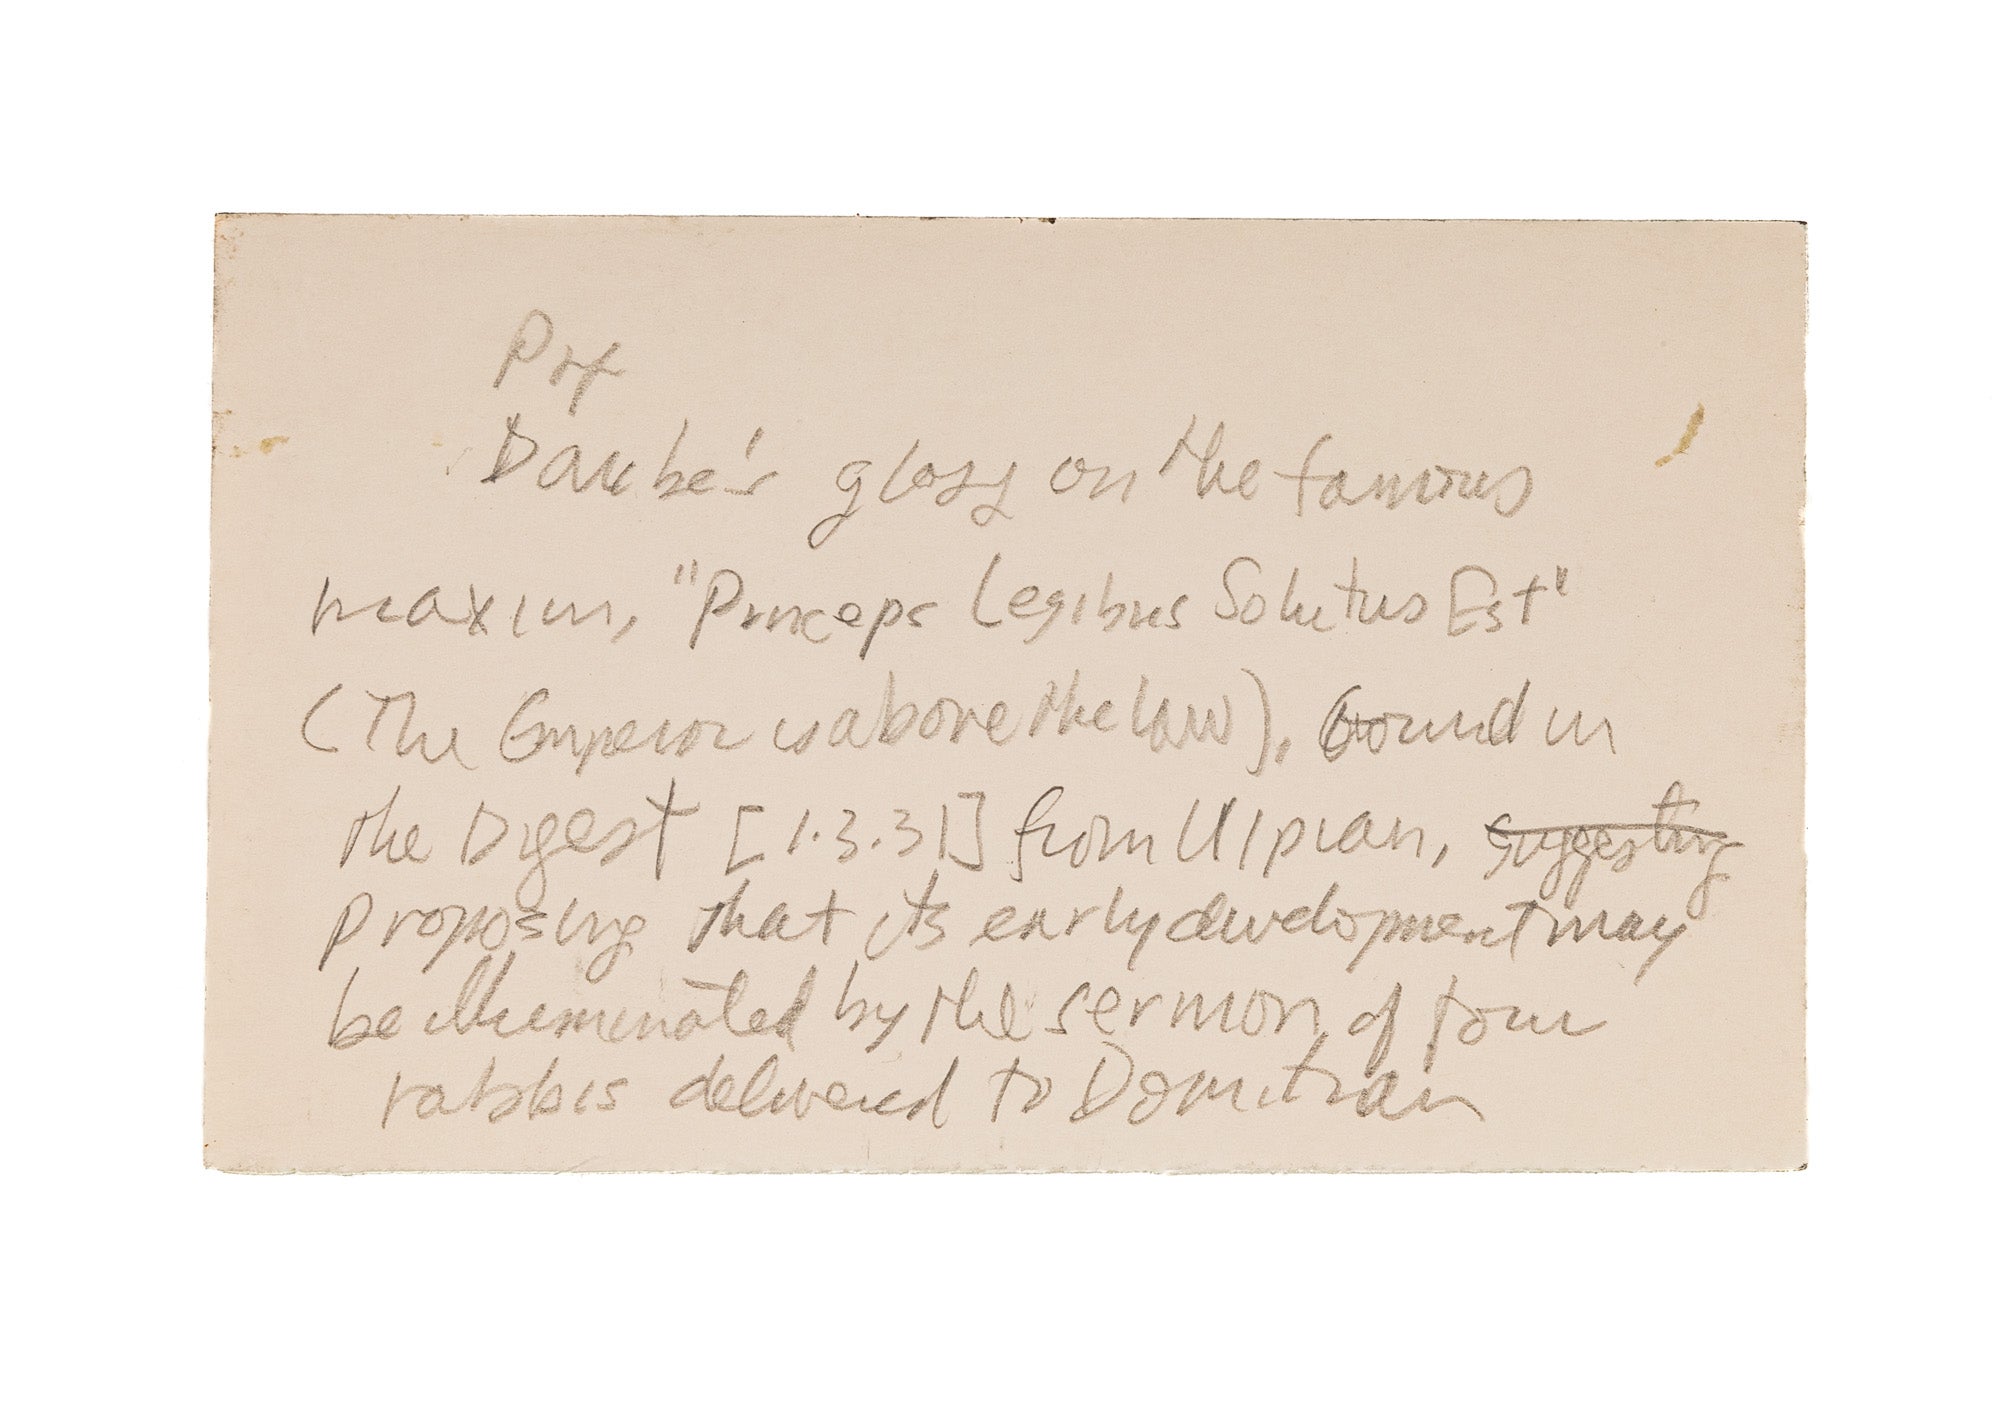 Prf
Daube's gloss on the famous
maxim, "Princeps Legibus Solutus Est"
(The Emperor is above the law), found in
the Digest [1.3.31] from Ulpian, suggesting
proposing that its early development may
be illuminated by the sermon of four
rabbis delivered to Domitian